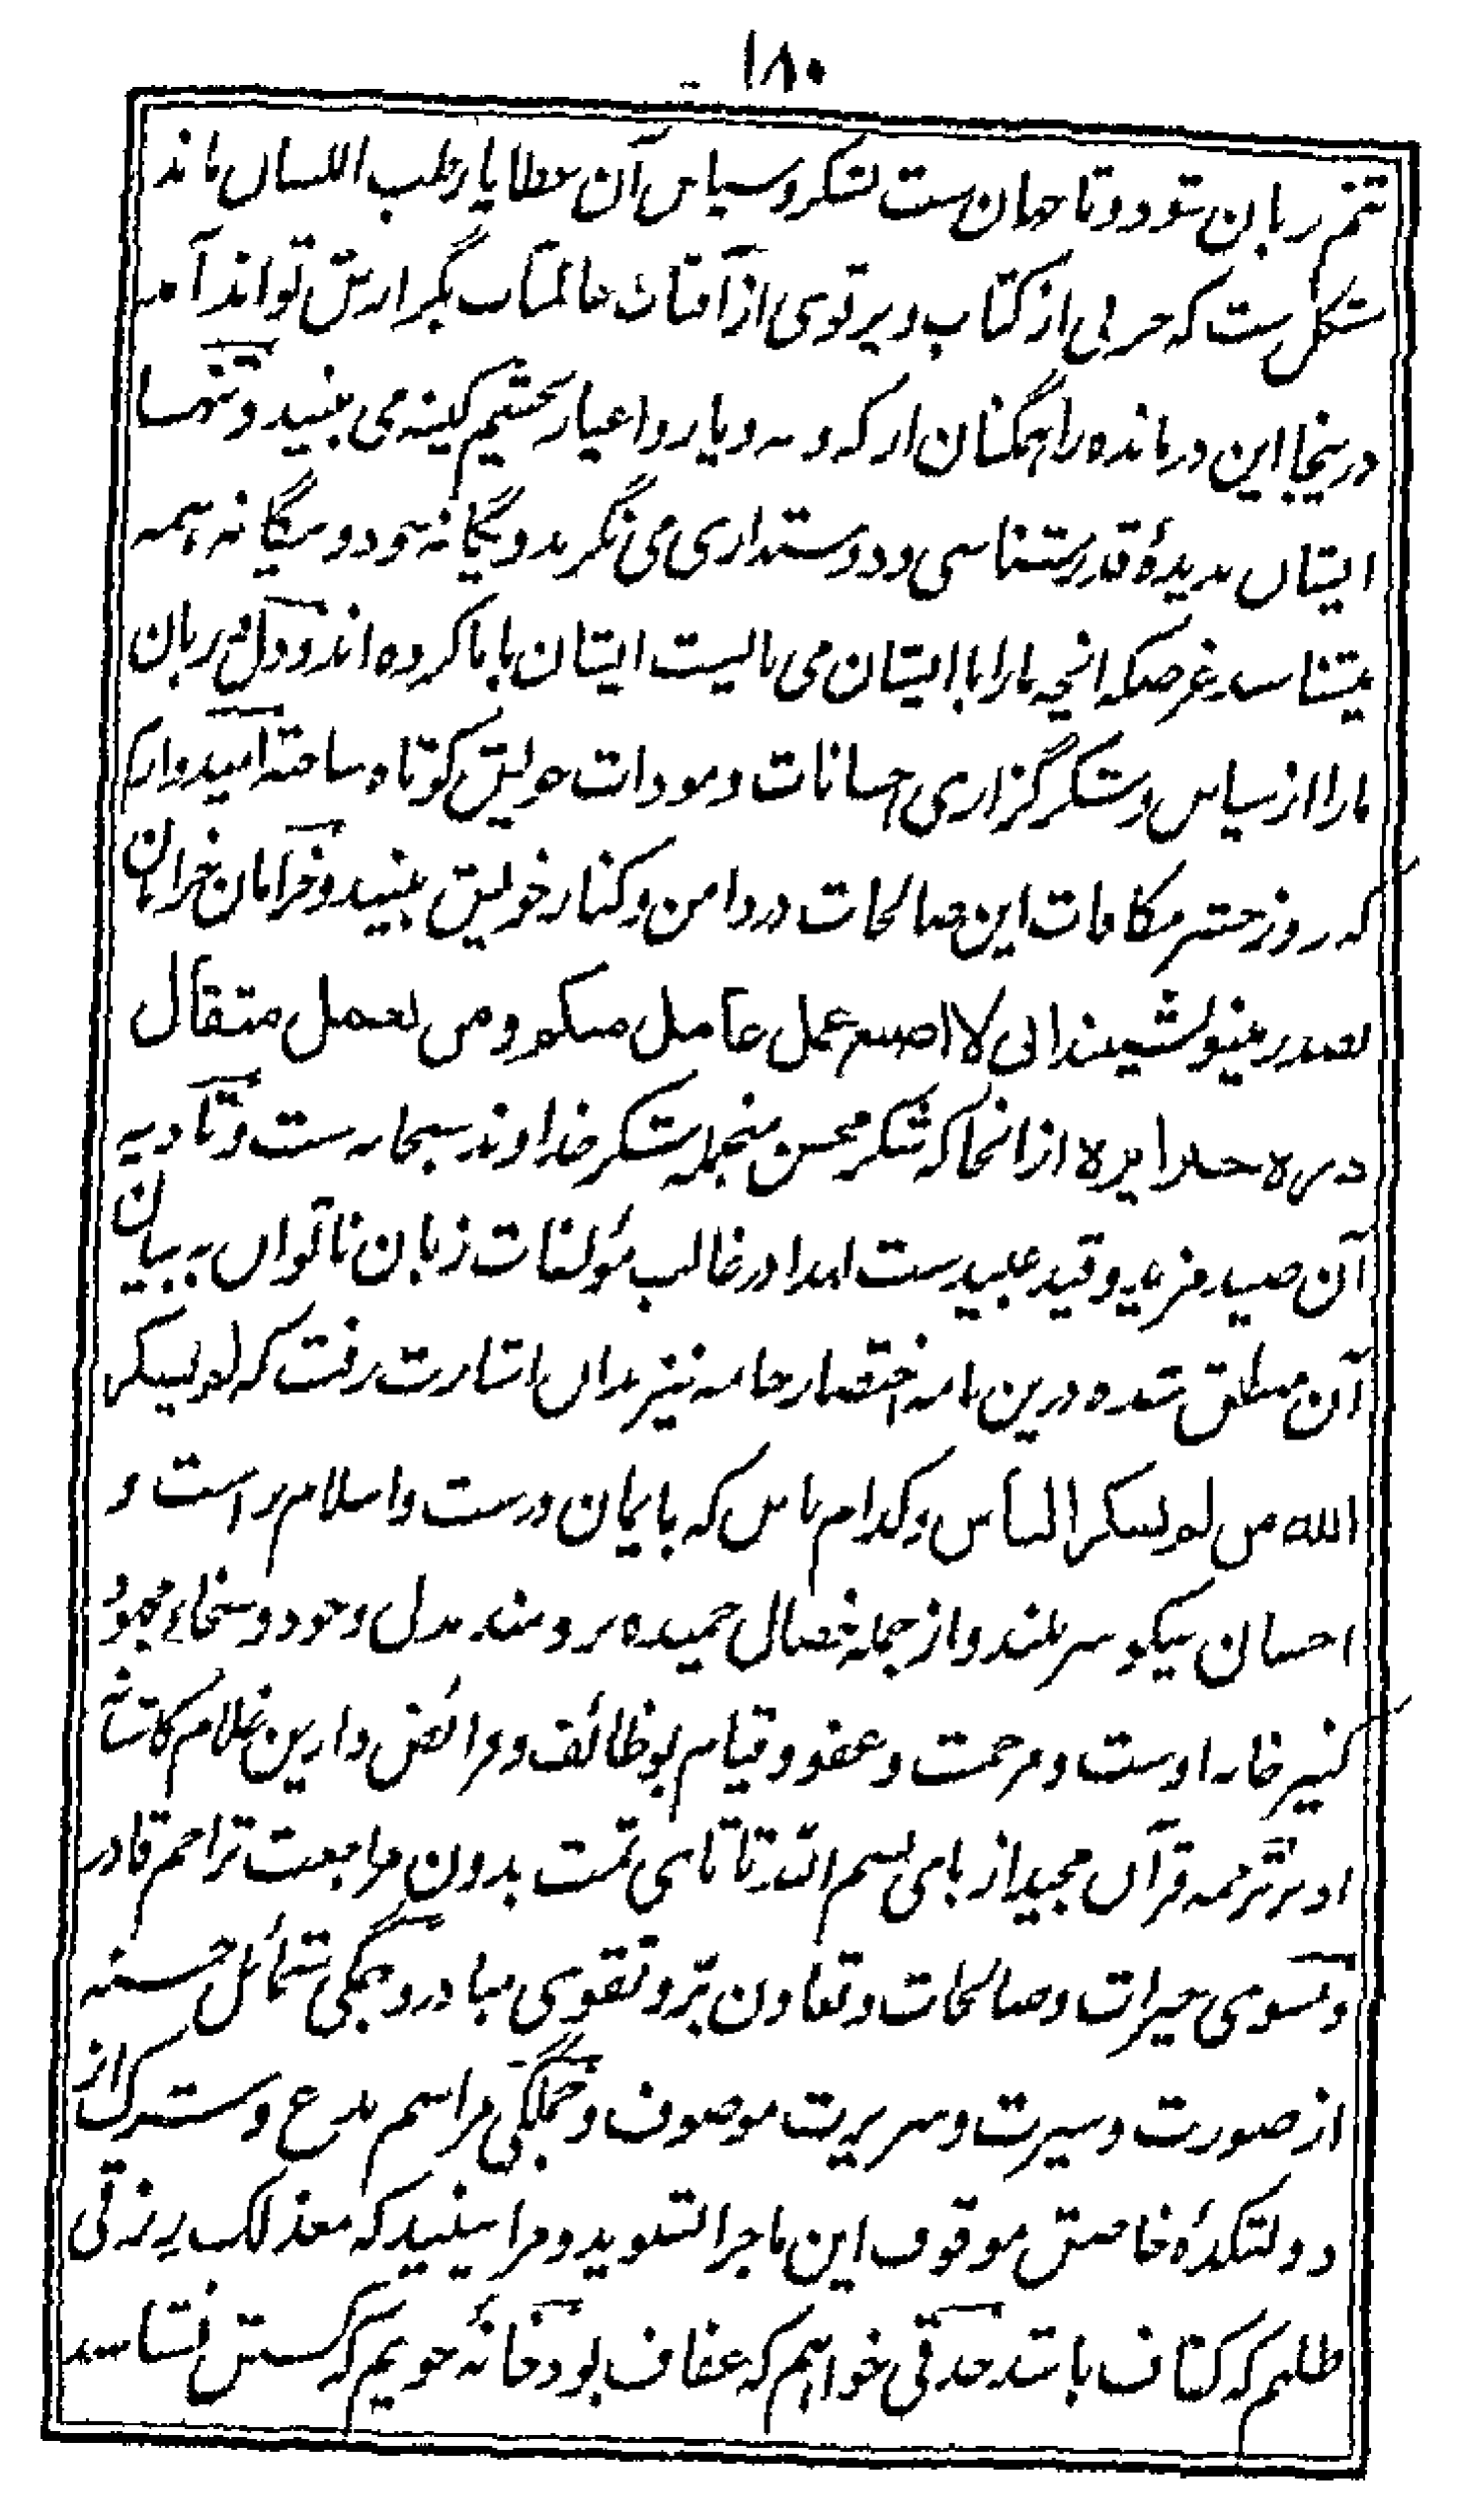 ۱۸۰
تنم زبان شود و تا جهان ست بشکر و سپاس آن عطایا رطب اللسان ماند
مشکل ست که حرفی از کتاب و پرتوی از آفتاب عالمتاب بگزارش تواند آمد
درینجا این درمانده را همگنان از که و مه و یار و اغیار بچشم کینه می بینید و تنها
ایشان بدیدهٔ قدرشناسی و دوستداری می نگرند و یگانه خود و بیگانه همه
میشناسند غرضکه انچه ما را با ایشان می بایست ایشان با ما کرده اند و دل و زبان
ما را از سپاس و شکرگزاری احسانات و مودات خویش کوتاه ساخته امیدوارم
که روز حشر مکافات این صالحات در دامن و کنار خویش بینید و خرامان خرامان
بصدر مینو نشینند انی لا اضیع عمل عامل منکم و من یعمل مثقال
ذرة خیرا یره از انجا که شکر محسن منجمله شکر خداوند سبحانه ست و تادیه
آن صید مزید و قید عبید ست لهذا در غالب مؤلفات زبان ناتوان به بیان
آن منطلق شده درین نامه اختصار جامه نیز بدان اشارت رفت که لم یشکر
الله من لم یشکر الناس و کدام ناس که بایمان درست و اسلام راست و
احسان نیکو سربلند و از جمله خصال حمیده برومند بذل و جود و سخاء موجود
کنیز خانه اوست و مرحمت و عفو و قیام بوظائف و فرائض دارین غلام کاشانه
او بر ترجمه قرآن مجید از بای بسم الله تا تای تمت بدون مراجعت تراجم قادر
و بسوی خیرات و صالحات و تعاون برّ و تقوی مبادر و بهمگی شمائل حسنه
از صورت و سیرت و سریرت موصوف و جملگی مراسم بدع و شرک از
دولتکدهٔ خاصش موقوف این ماجرا بشنوید و مرا ببینید که معذلک رزقی
طلبم که کفاف باشد خدقی خواهم که عفاف بود خانهٔ جویم که کسش نشناسد